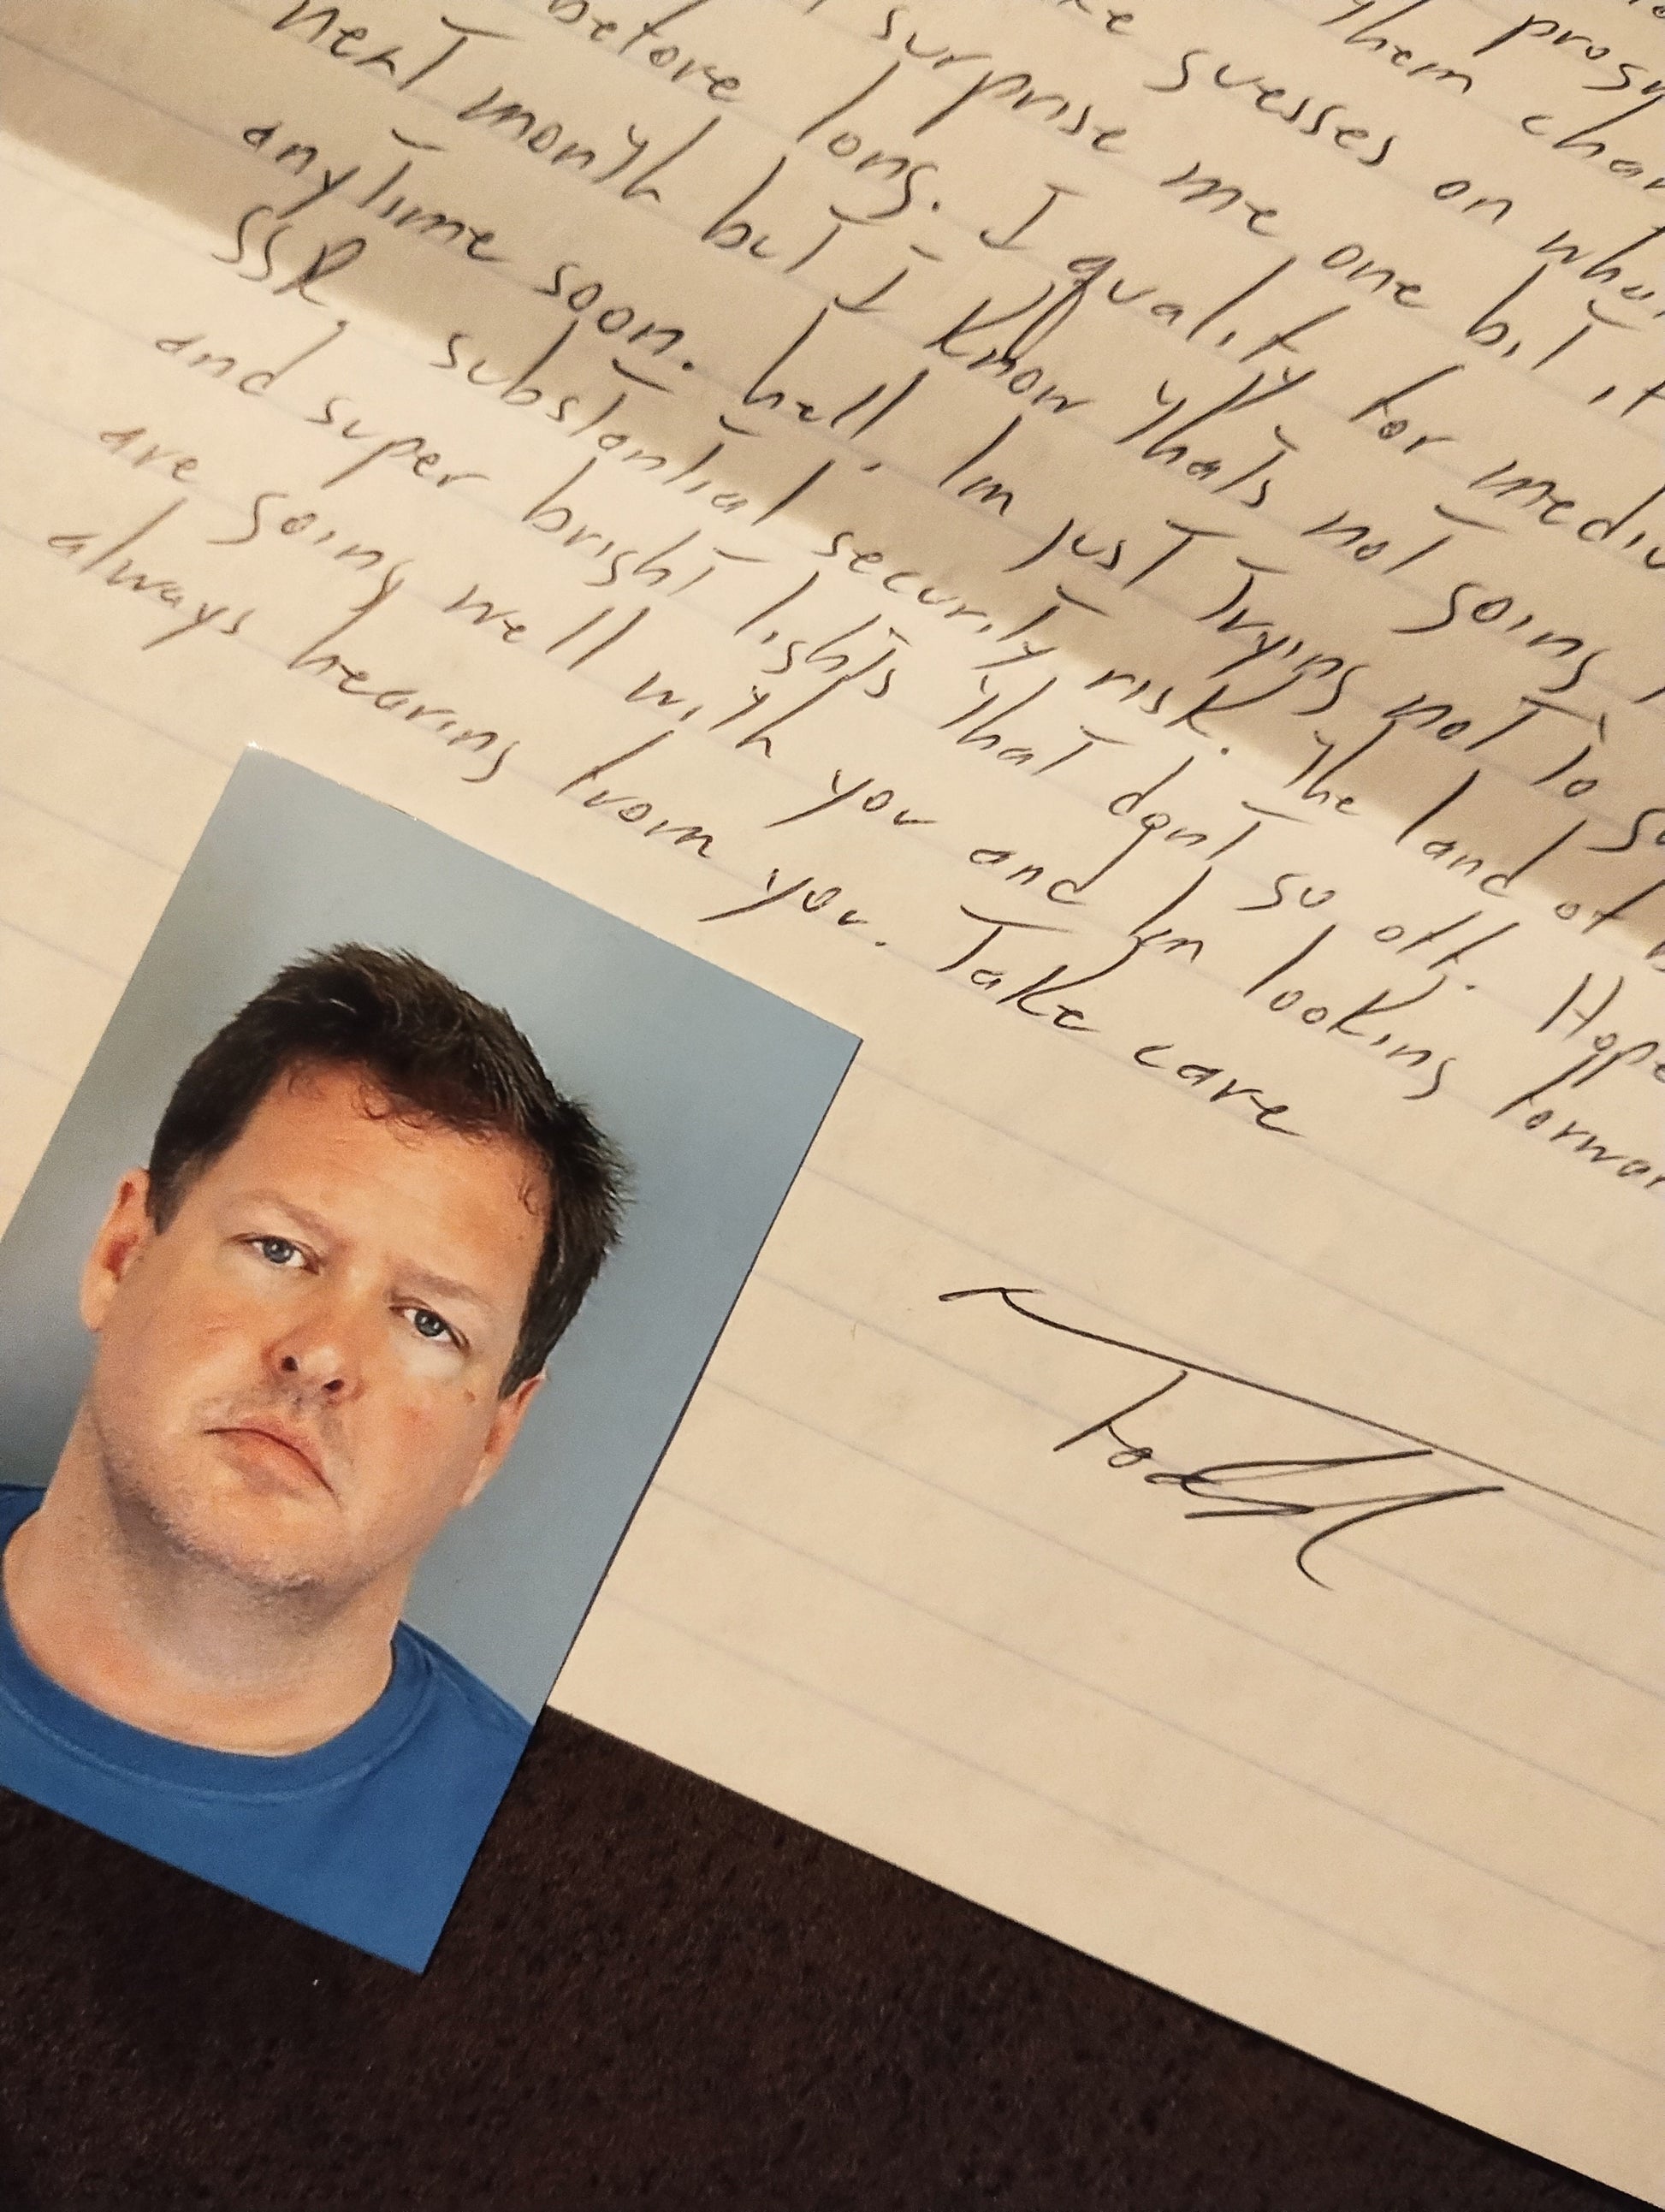 them char
guesses on wha
surprise me one bit
before long. I qualify for mediu
next month but I know thats not going
anytime soon. hell, Im just trying not to
SSR, substantial security risk. The land of
and super bright lights that dont go off. Hope
are going well with you and Im looking forwar
always hearing from you. Take care
Todd